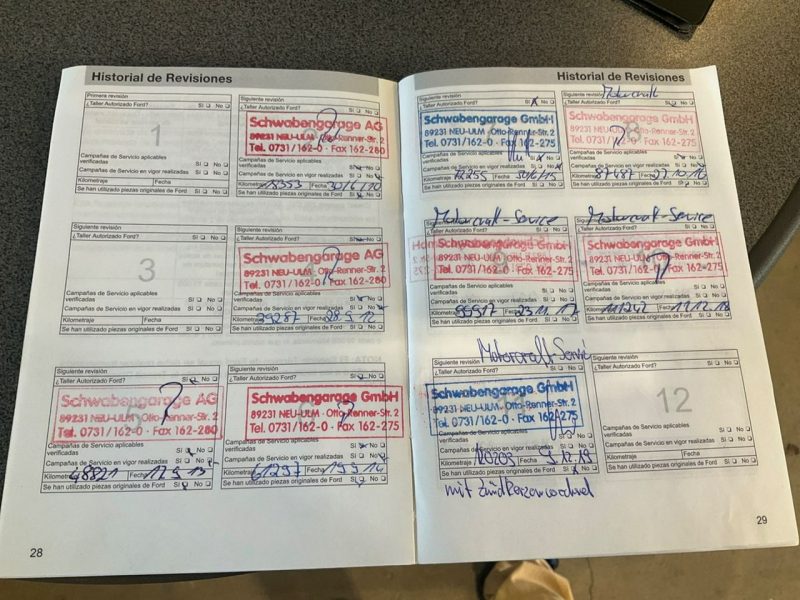 Historial de Revisiones
Primera revisión
¿Taller Autorizado Ford? Sí No
1
Campañas de Servicio aplicables
verificadas Sí No
Campañas de Servicio en vigor realizadas Sí No
Kilometraje Fecha
Se han utilizado piezas originales de Ford Sí No
Siguiente revisión
¿Taller Autorizado Ford? Sí No
Schwabengarage AG
89231 NEU-ULM Otto-Renner-Str. 2
Tel. 0731/162-0 · Fax 162-280
Campañas de Servicio aplicables
verificadas Sí No
Campañas de Servicio en vigor realizadas Sí No
Kilometraje 18353 Fecha 30/6/10
Se han utilizado piezas originales de Ford Sí No
Siguiente revisión
¿Taller Autorizado Ford? Sí No
3
Campañas de Servicio aplicables
verificadas Sí No
Campañas de Servicio en vigor realizadas Sí No
Kilometraje Fecha
Se han utilizado piezas originales de Ford Sí No
Siguiente revisión
¿Taller Autorizado Ford? Sí No
Schwabengarage AG
89231 NEU-ULM Otto-Renner-Str. 2
Tel. 0731/162-0 · Fax 162-280
Campañas de Servicio aplicables
verificadas Sí No
Campañas de Servicio en vigor realizadas Sí No
Kilometraje Fecha 28.9.12
Se han utilizado piezas originales de Ford Sí No
Siguiente revisión
¿Taller Autorizado Ford? Sí No
Schwabengarage AG
89231 NEU-ULM Otto-Renner-Str. 2
Tel. 0731/162-0 · Fax 162-280
Campañas de Servicio aplicables
verificadas Sí No
Campañas de Servicio en vigor realizadas Sí No
Kilometraje 48821 Fecha 17.9.13
Se han utilizado piezas originales de Ford Sí No
Siguiente revisión
¿Taller Autorizado Ford? Sí No
Schwabengarage GmbH
89231 NEU-ULM · Otto-Renner-Str. 2
Tel. 0731/162-0 · Fax 162-275
Campañas de Servicio aplicables
verificadas Sí No
Campañas de Servicio en vigor realizadas Sí No
Kilometraje 61297 Fecha 19.9.14
Se han utilizado piezas originales de Ford Sí No
28
Historial de Revisiones
Siguiente revisión
¿Taller Autorizado Ford? Sí No
Schwabengarage GmbH
89231 NEU-ULM · Otto-Renner-Str. 2
Tel. 0731/162-0 · Fax 162-275
Campañas de Servicio aplicables
verificadas Sí No
Campañas de Servicio en vigor realizadas Sí No
Kilometraje 72255 Fecha
Se han utilizado piezas originales de Ford Sí No
Motorcraft
Siguiente revisión
¿Taller Autorizado Ford? Sí No
Schwabengarage GmbH
89231 NEU-ULM · Otto-Renner-Str. 2
Tel. 0731/162-0 · Fax 162-275
Campañas de Servicio aplicables
verificadas Sí No
Campañas de Servicio en vigor realizadas Sí No
Kilometraje 87487 Fecha
Se han utilizado piezas originales de Ford Sí No
Motorcraft-Service
Schwabengarage GmbH
89231 NEU-ULM · Otto-Renner-Str. 2
Tel. 0731/162-0 · Fax 162-275
Campañas de Servicio aplicables
verificadas Sí No
Campañas de Servicio en vigor realizadas Sí No
Kilometraje Fecha 23.11.17
Se han utilizado piezas originales de Ford Sí No
Motorcraft-Service
Schwabengarage GmbH
89231 NEU-ULM · Otto-Renner-Str. 2
Tel. 0731/162-0 · Fax 162-275
Campañas de Servicio aplicables
verificadas Sí No
Campañas de Servicio en vigor realizadas Sí No
Kilometraje 111242 Fecha
Se han utilizado piezas originales de Ford Sí No
Motorcraft-Service
Siguiente revisión
¿Taller Autorizado Ford? Sí No
Schwabengarage GmbH
89231 NEU-ULM · Otto-Renner-Str. 2
Tel. 0731/162-0 · Fax 162-275
Campañas de Servicio aplicables
verificadas Sí No
Campañas de Servicio en vigor realizadas Sí No
Kilometraje Fecha 9.12.19
Se han utilizado piezas originales de Ford Sí No
mit Zündkerzenwechsel
Siguiente revisión
¿Taller Autorizado Ford? Sí No
12
Campañas de Servicio aplicables
verificadas Sí No
Campañas de Servicio en vigor realizadas Sí No
Kilometraje Fecha
Se han utilizado piezas originales de Ford Sí No
29